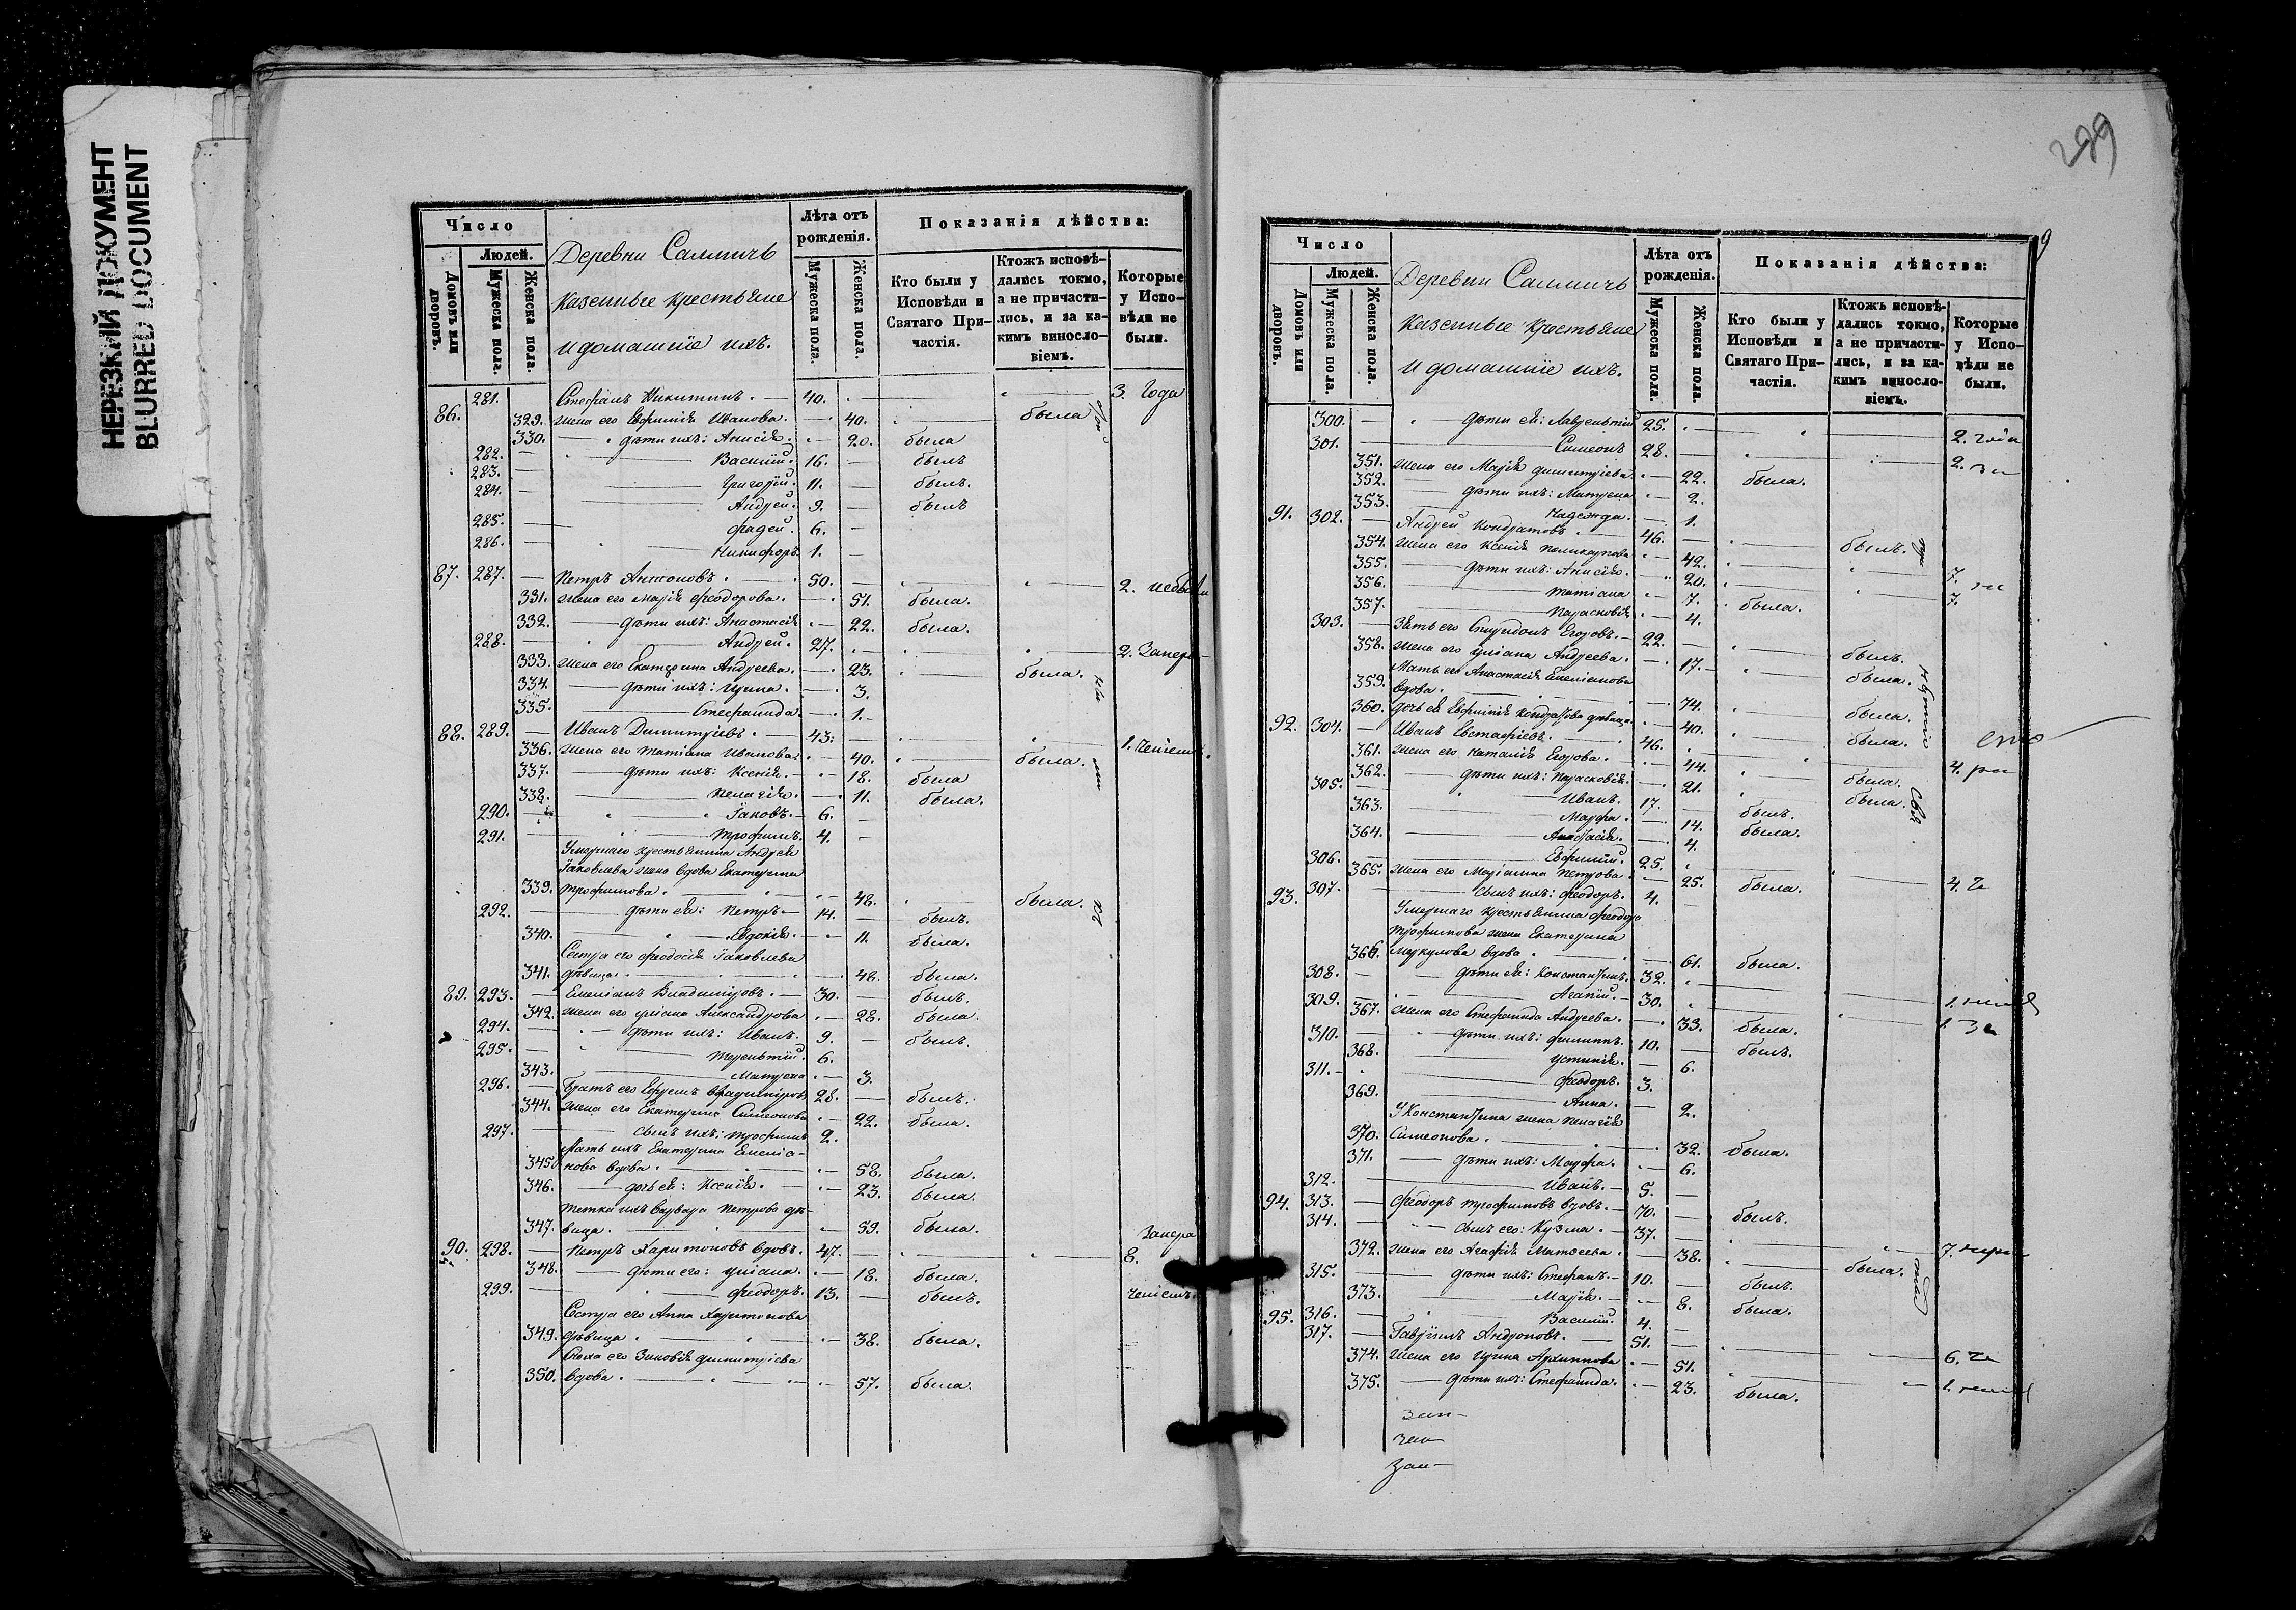 НЕРЕЗКИЙ ДОКУМЕНТ
BLURRED DOCUMENT
Число
Людей.
Домовъ или дворовъ.
Мужеска пола.
Женска пола.
Деревни Саммичь
казенные крестьяне
и домашніе ихъ.
Лѣта отъ рожденія.
Мужеска пола.
Женска пола.
Показанія дѣйства:
Кто были у Исповѣди и Святаго Причастія.
Ктожъ исповѣдались токмо, а не причастились, и за какимъ винословіемъ.
Которые у Исповѣди не были.
86. 281. Стефанъ Никитинъ. 40. 3. года
329. жена его Евфимія Иванова. 40. была
330. дѣти ихъ: Анисія. 20. была
282. Василій. 16. былъ
283. Григорій. 11. былъ.
284. Андрей. 9. былъ
285. Фадей. 6.
286. Никифоръ. 1.
87. 287. Петръ Антоновъ. 50. 2.
331. жена его Марія Феодорова. 51. была.
332. дѣти ихъ: Анастасія. 22. была.
288. Андрей. 27. 2.
333. жена его Екатерина Андреева. 23. была.
334. дѣти ихъ: Ирина. 3.
335. Стефанида. 1.
88. 289. Иванъ Димитріевъ. 43. 1.
336. жена его Татіана Иванова. 40. была.
337. дѣти ихъ: Ксенія. 18. была
338. Пелагія. 11. была.
290. Іаковъ. 6.
291. Трофимъ. 4.
Умершаго крестьянина Андрея
Іаковлева жена вдова Екатерина
339. Трофимова. 48. была.
292. дѣти ея: Петръ 14. былъ.
340. Евдокія. 11. была.
Сестра его Феодосія Іаковлева
341. дѣвица. 48. была.
89. 293. Емеліанъ Владиміровъ. 30. былъ.
342. жена его Уліана Александрова 28. была.
294. дѣти ихъ: Иванъ. 9. былъ.
295. Терентій. 6.
343. Матрена 3.
296. Братъ его Ефремъ Владиміровъ 28. былъ.
344. жена его Екатерина Симеонова 22. была.
297. сынъ ихъ: Трофимъ 2.
Мать ихъ Екатерина Емеліа-
345. нова вдова. 58. была.
346. дочь ея: Ксенія. 23. была.
Тетка ихъ Варвара Петрова дѣ-
347. вица. 59. была.
90. 298. Петръ Харитоновъ вдовъ. 47. 8.
348. дѣти его: Уліана. 18. была.
299. Феодоръ. 13. былъ.
Сестра его Анна Харитонова
349. дѣвица. 38. была.
Сноха его Зиновія Димитріева
350. вдова. 57. была.
299
Число
Людей.
Домовъ или дворовъ.
Мужеска пола.
Женска пола.
Деревни Саммичь
казенные крестьяне
и домашніе ихъ.
Лѣта отъ рожденія.
Мужеска пола.
Женска пола.
Показанія дѣйства:
Кто были у Исповѣди и Святаго Причастія.
Ктожъ исповѣдались токмо, а не причастились, и за какимъ винословіемъ.
Которые у Исповѣди не были.
300. дѣти ея: Лаврентій 25. 2. года
301. Симеонъ 28. 2.
351. жена его Марія Димитріева. 22. была.
352. дѣти ихъ: Матрена 2.
353. Надежда. 1.
91. 302. Андрей Кондратовъ. 46. былъ.
354. жена его Ксенія Поликарпова 42. 7.
355. дѣти ихъ: Анисія. 20. 7.
356. Татіана 7. была.
357. Парасковія 4.
303. Зять его Спиридонъ Егоровъ. 22. былъ.
358. жена его Уліана Андреева. 17. была.
Мать его Анастасія Емеліанова
359. вдова. 74. была.
360. дочь ея Евфимія Кондратова дѣвица. 40. была.
92. 304. Иванъ Евстафіевъ. 46. 4.
361. жена его Наталія Егорова. 44. была.
362. дѣти ихъ: Парасковія. 21. была.
305. Иванъ. 17. былъ.
363. Марфа. 14. была.
364. Анастасія. 4.
306. Евфимій. 25. 4.
365. жена его Маріамна Петрова. 25. была.
93. 307. сынъ ихъ: Феодоръ. 4.
Умершаго крестьянина Феодора
Трофимова жена Екатерина
366. Меркулова вдова. 61. была.
308. дѣти ея: Константинъ. 32. 1.
309. Агапій. 30. 1.
367. жена его Стефанида Андреева. 33. была.
310. дѣти ихъ: Филиппъ. 10. былъ.
368. Устинія. 6.
311. Феодоръ. 3.
369. Анна. 2.
У Константина жена Пелагія
370. Симеонова. 32. была.
371. дѣти ихъ: Марфа. 6.
312. Иванъ. 5.
94. 313. Феодоръ Трофимовъ вдовъ. 70. былъ.
314. сынъ его: Кузма. 37. 7.
372. жена его Агафія Матвеева. 38. была.
315. дѣти ихъ: Стефанъ. 10. былъ.
373. Марія. 8. была.
95. 316. Василій. 4.
317. Гавріилъ Андроновъ. 51. 6.
374. жена его Ирина Архиппова 51. 1.
375. дѣти ихъ: Стефанида. 23. была.